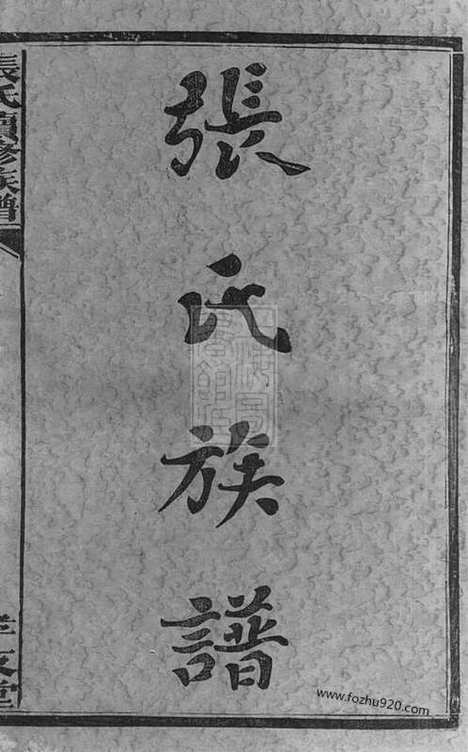 張氏族譜
張氏續修族譜
孝友堂
www.fozhu920.com